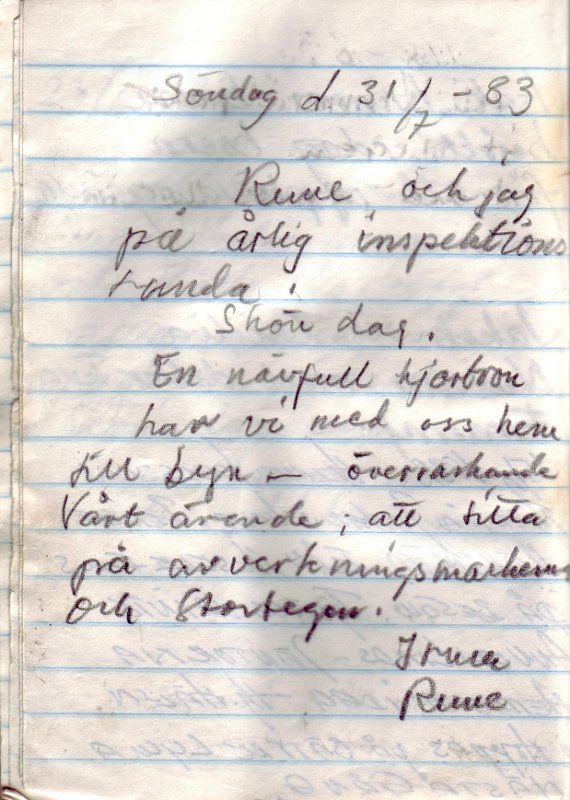 Söndag d 31/7 - 83
Rune och jag
på årlig inspektions
runda.
Skön dag.
En nävfull hjortron
har vi med oss hem
till byn - överraskande
Vårt ärende; att titta
på avverkningsmarkerna
och Stortegen.
Irma
Rune